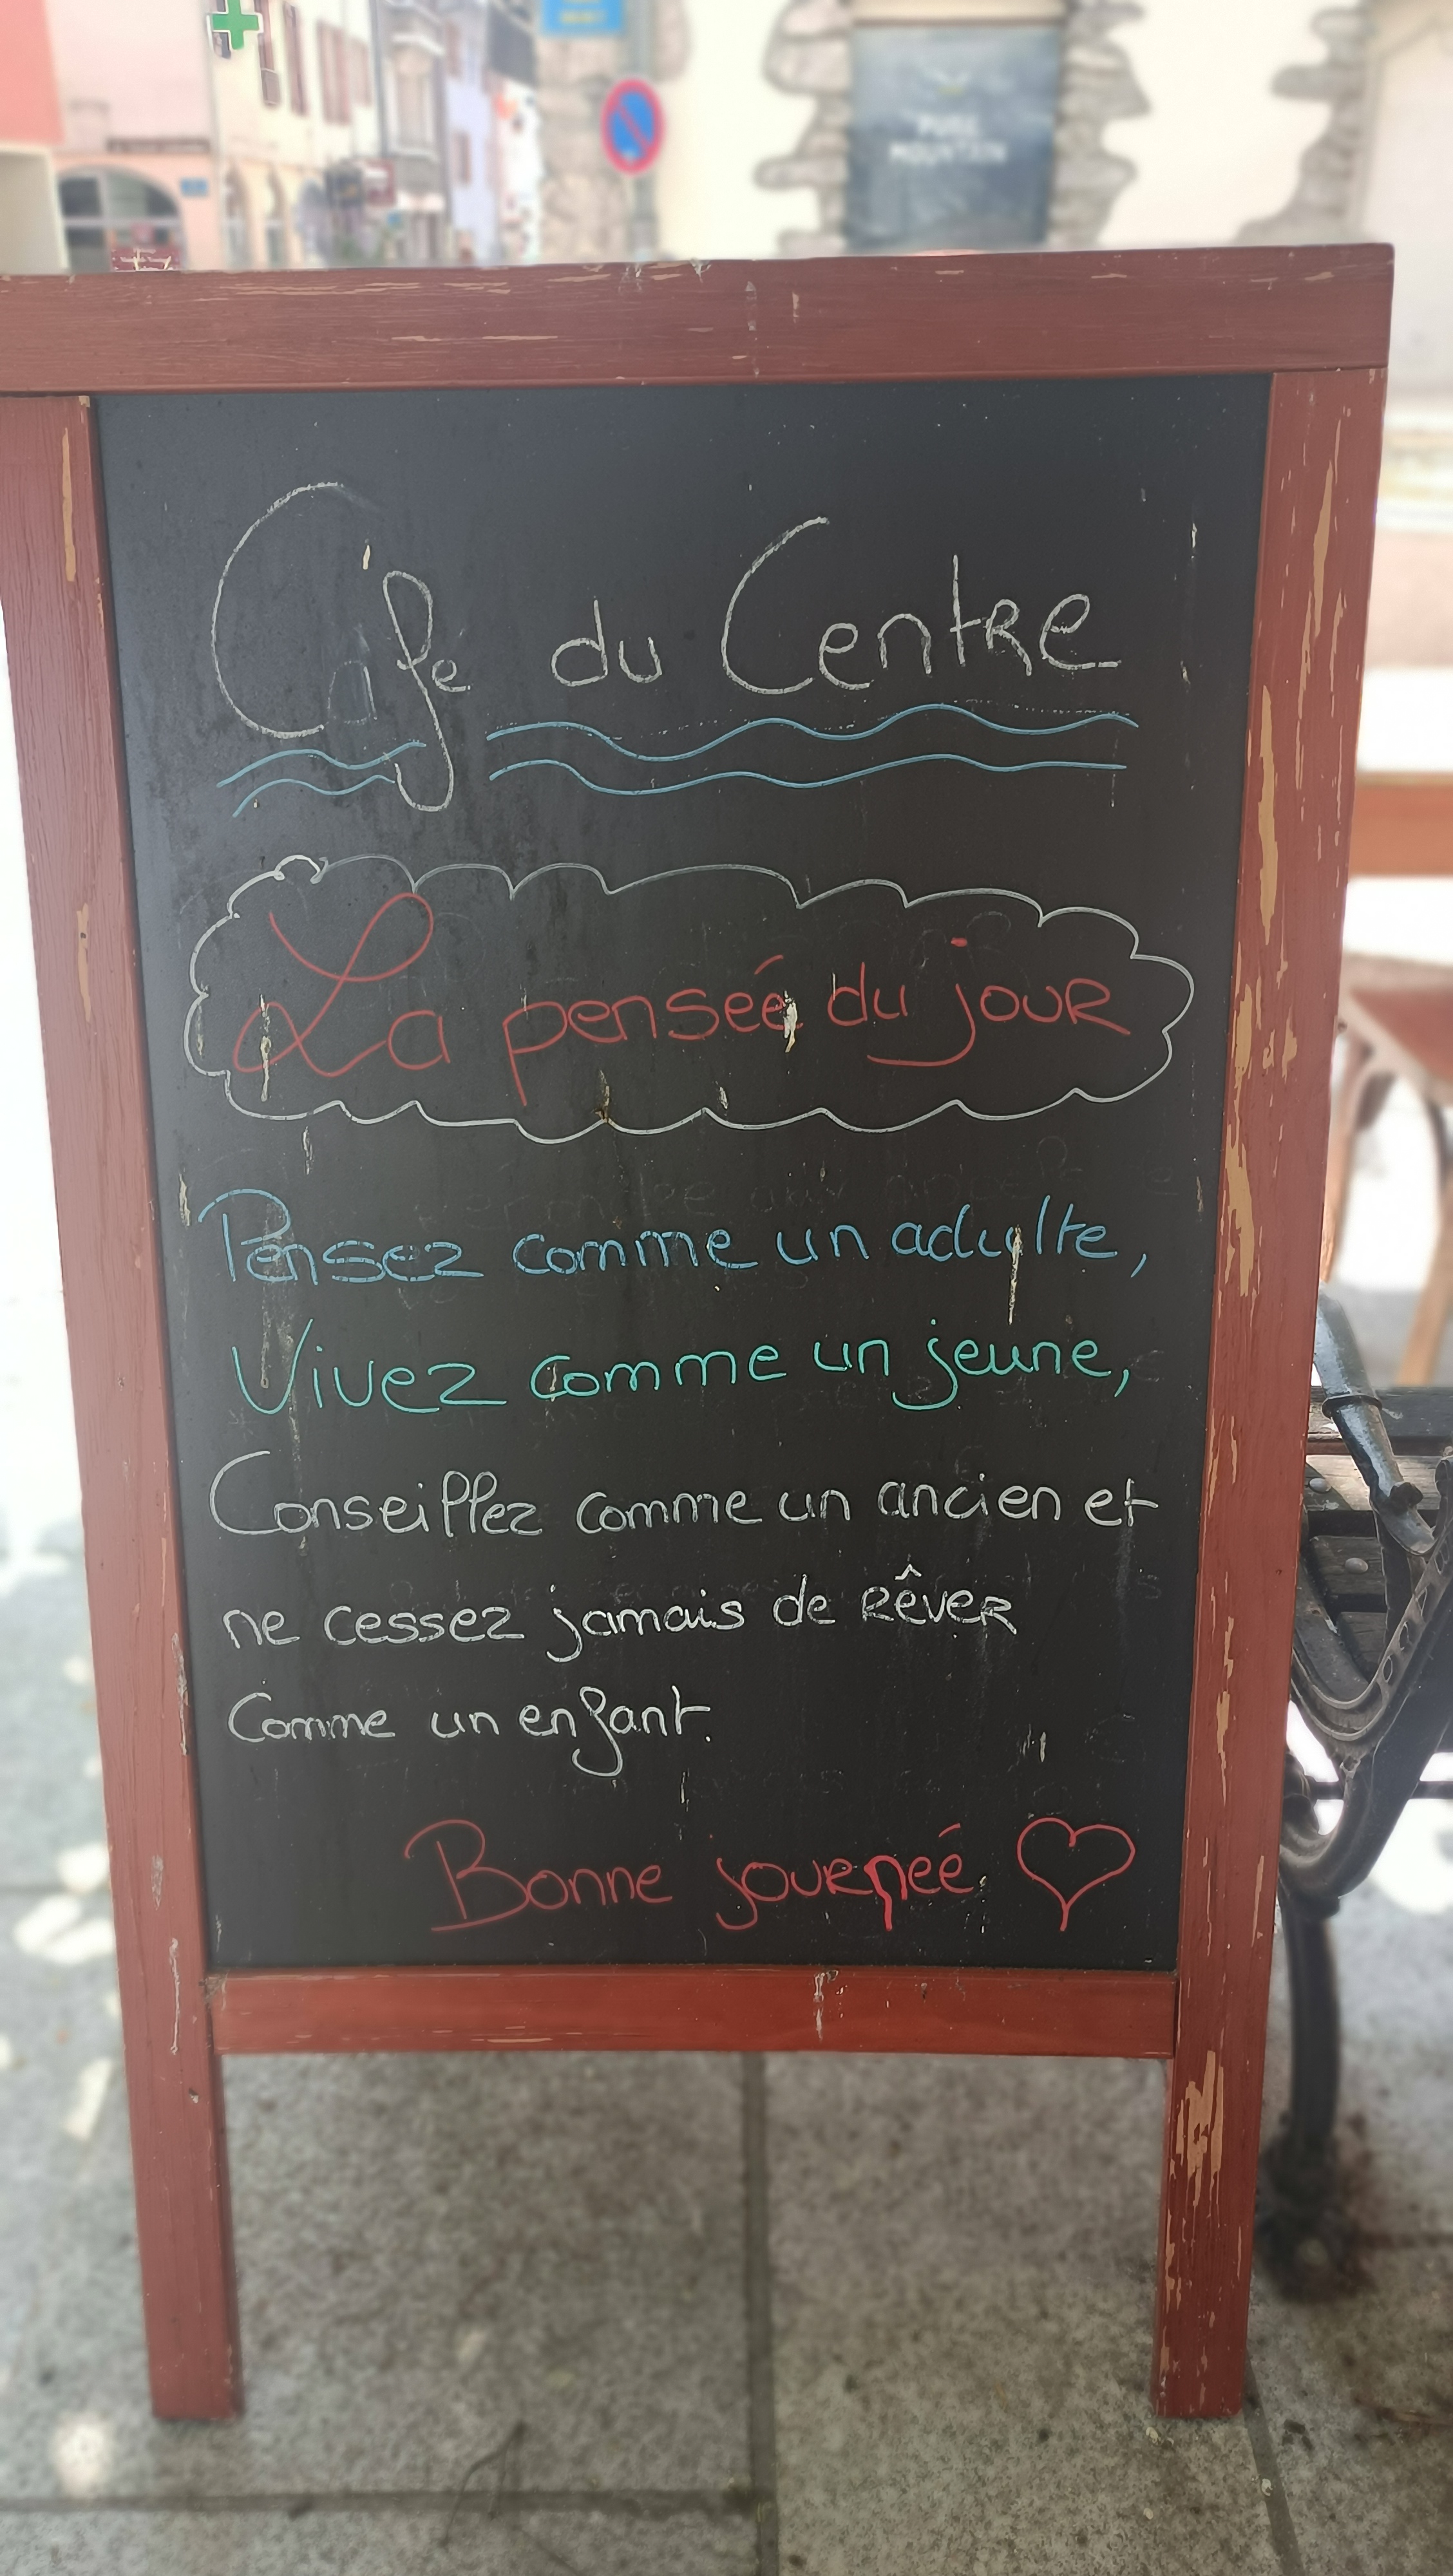 PURE
MOUNTAIN
Café du Centre
La pensée du jour
Pensez comme un adulte,
Vivez comme un jeune,
Conseillez comme un ancien et
ne cessez jamais de rêver
Comme un enfant.
Bonne journée